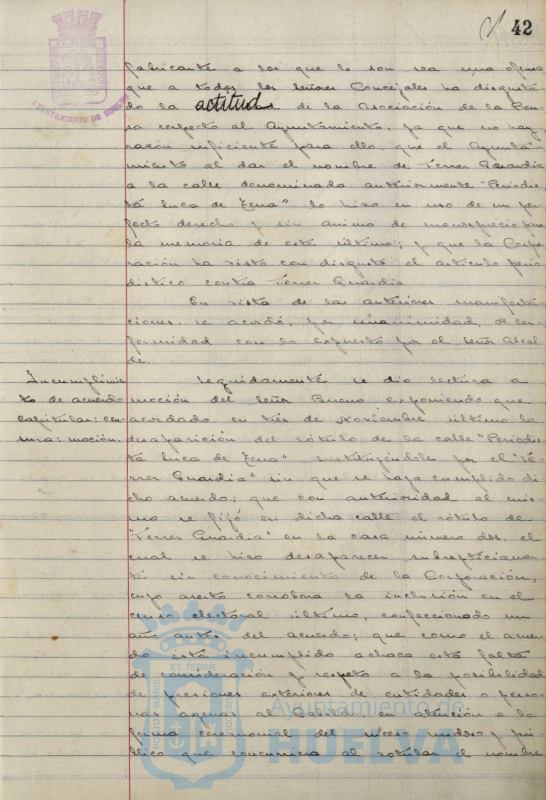 42
AYUNTAMIENTO DE HUELVA
fabricante a los que le son sea una ofensa
que a todos los señores Concejales ha disgusta
do la actitud de la Asociación de la Pren
sa respecto al Ayuntamiento, ya que no hay
razón suficiente para ello; que el Ayunta
miento al dar el nombre de Ferrer Guardia
a la calle denominada anteriormente "Periodis
ta Luca de Tena" lo hizo en uso de un per
fecto derecho y sin ánimo de menosprecio para
la memoria de este último; y que la Corpo
ración ha visto con disgusto el artículo perio
dístico contra Ferrer Guardia.
En vista de las anteriores manifesta
ciones, se acordó, por unanimidad, de con
formidad con lo expuesto por el Señor Alcal
de.
Incumplimien
to de acuerdo
capitular: cen
sura: moción.
Seguidamente se dio lectura a
moción del Señor Bueno exponiendo que
acordado en tres de Noviembre último la
desaparición del rótulo de la calle "Periodis
ta Luca de Tena" sustituyéndole por el "Fe
rrer Guardia" sin que se haya cumplido di
cho acuerdo; que con anterioridad al mis
mo se fijó en dicha calle el rótulo de
"Ferrer Guardia" en la casa número dos, el
cual se hizo desaparecer subrepticiamen
te sin conocimiento de la Corporación,
cuyo aserto corrobora la inclusión en el
censo electoral último, confeccionado un
año antes del acuerdo; que como el acuer
do está incumplido achaca esta falta
de consideración y respeto a la posibilidad
de presiones exteriores de entidades o perso
nas agenas al Cabildo en atención a la
forma ceremonial del suceso ruidoso y pú
blico que concurriera al rotular el nombre
Ayuntamiento de
HUELVA